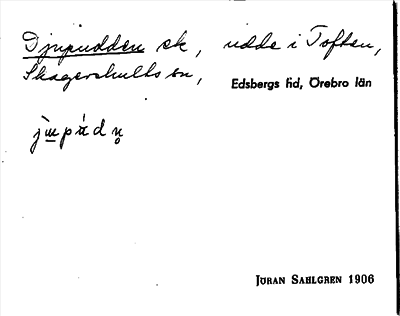 Djupudden sk, udde i Toften,
Skagershults sn, Edsbergs hd, Örebro län
JÖRAN SAHLGREN 1906